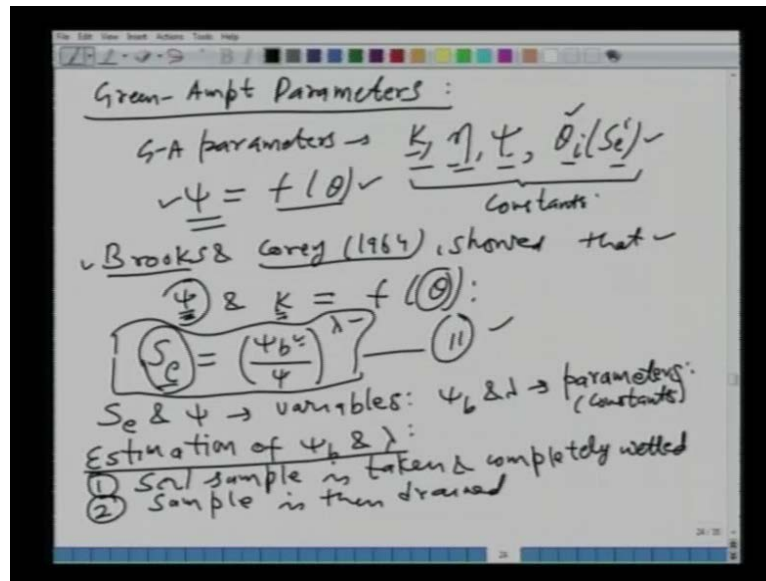 File Edit View Insert Actions Tools Help
Green-Ampt Parameters :
G-A parameters → K, η, ψ, θi(Se)
Constants.
ψ = f(θ)
Brooks & Corey (1964), showed that
ψ & K = f(θ):
Se = (ψb/ψ)^λ — (11)
Se & ψ → variables: ψb & λ → parameters:
(constants)
Estimation of ψb & λ:
① Soil sample is taken & completely wetted
② Sample is then drained
24/35
24